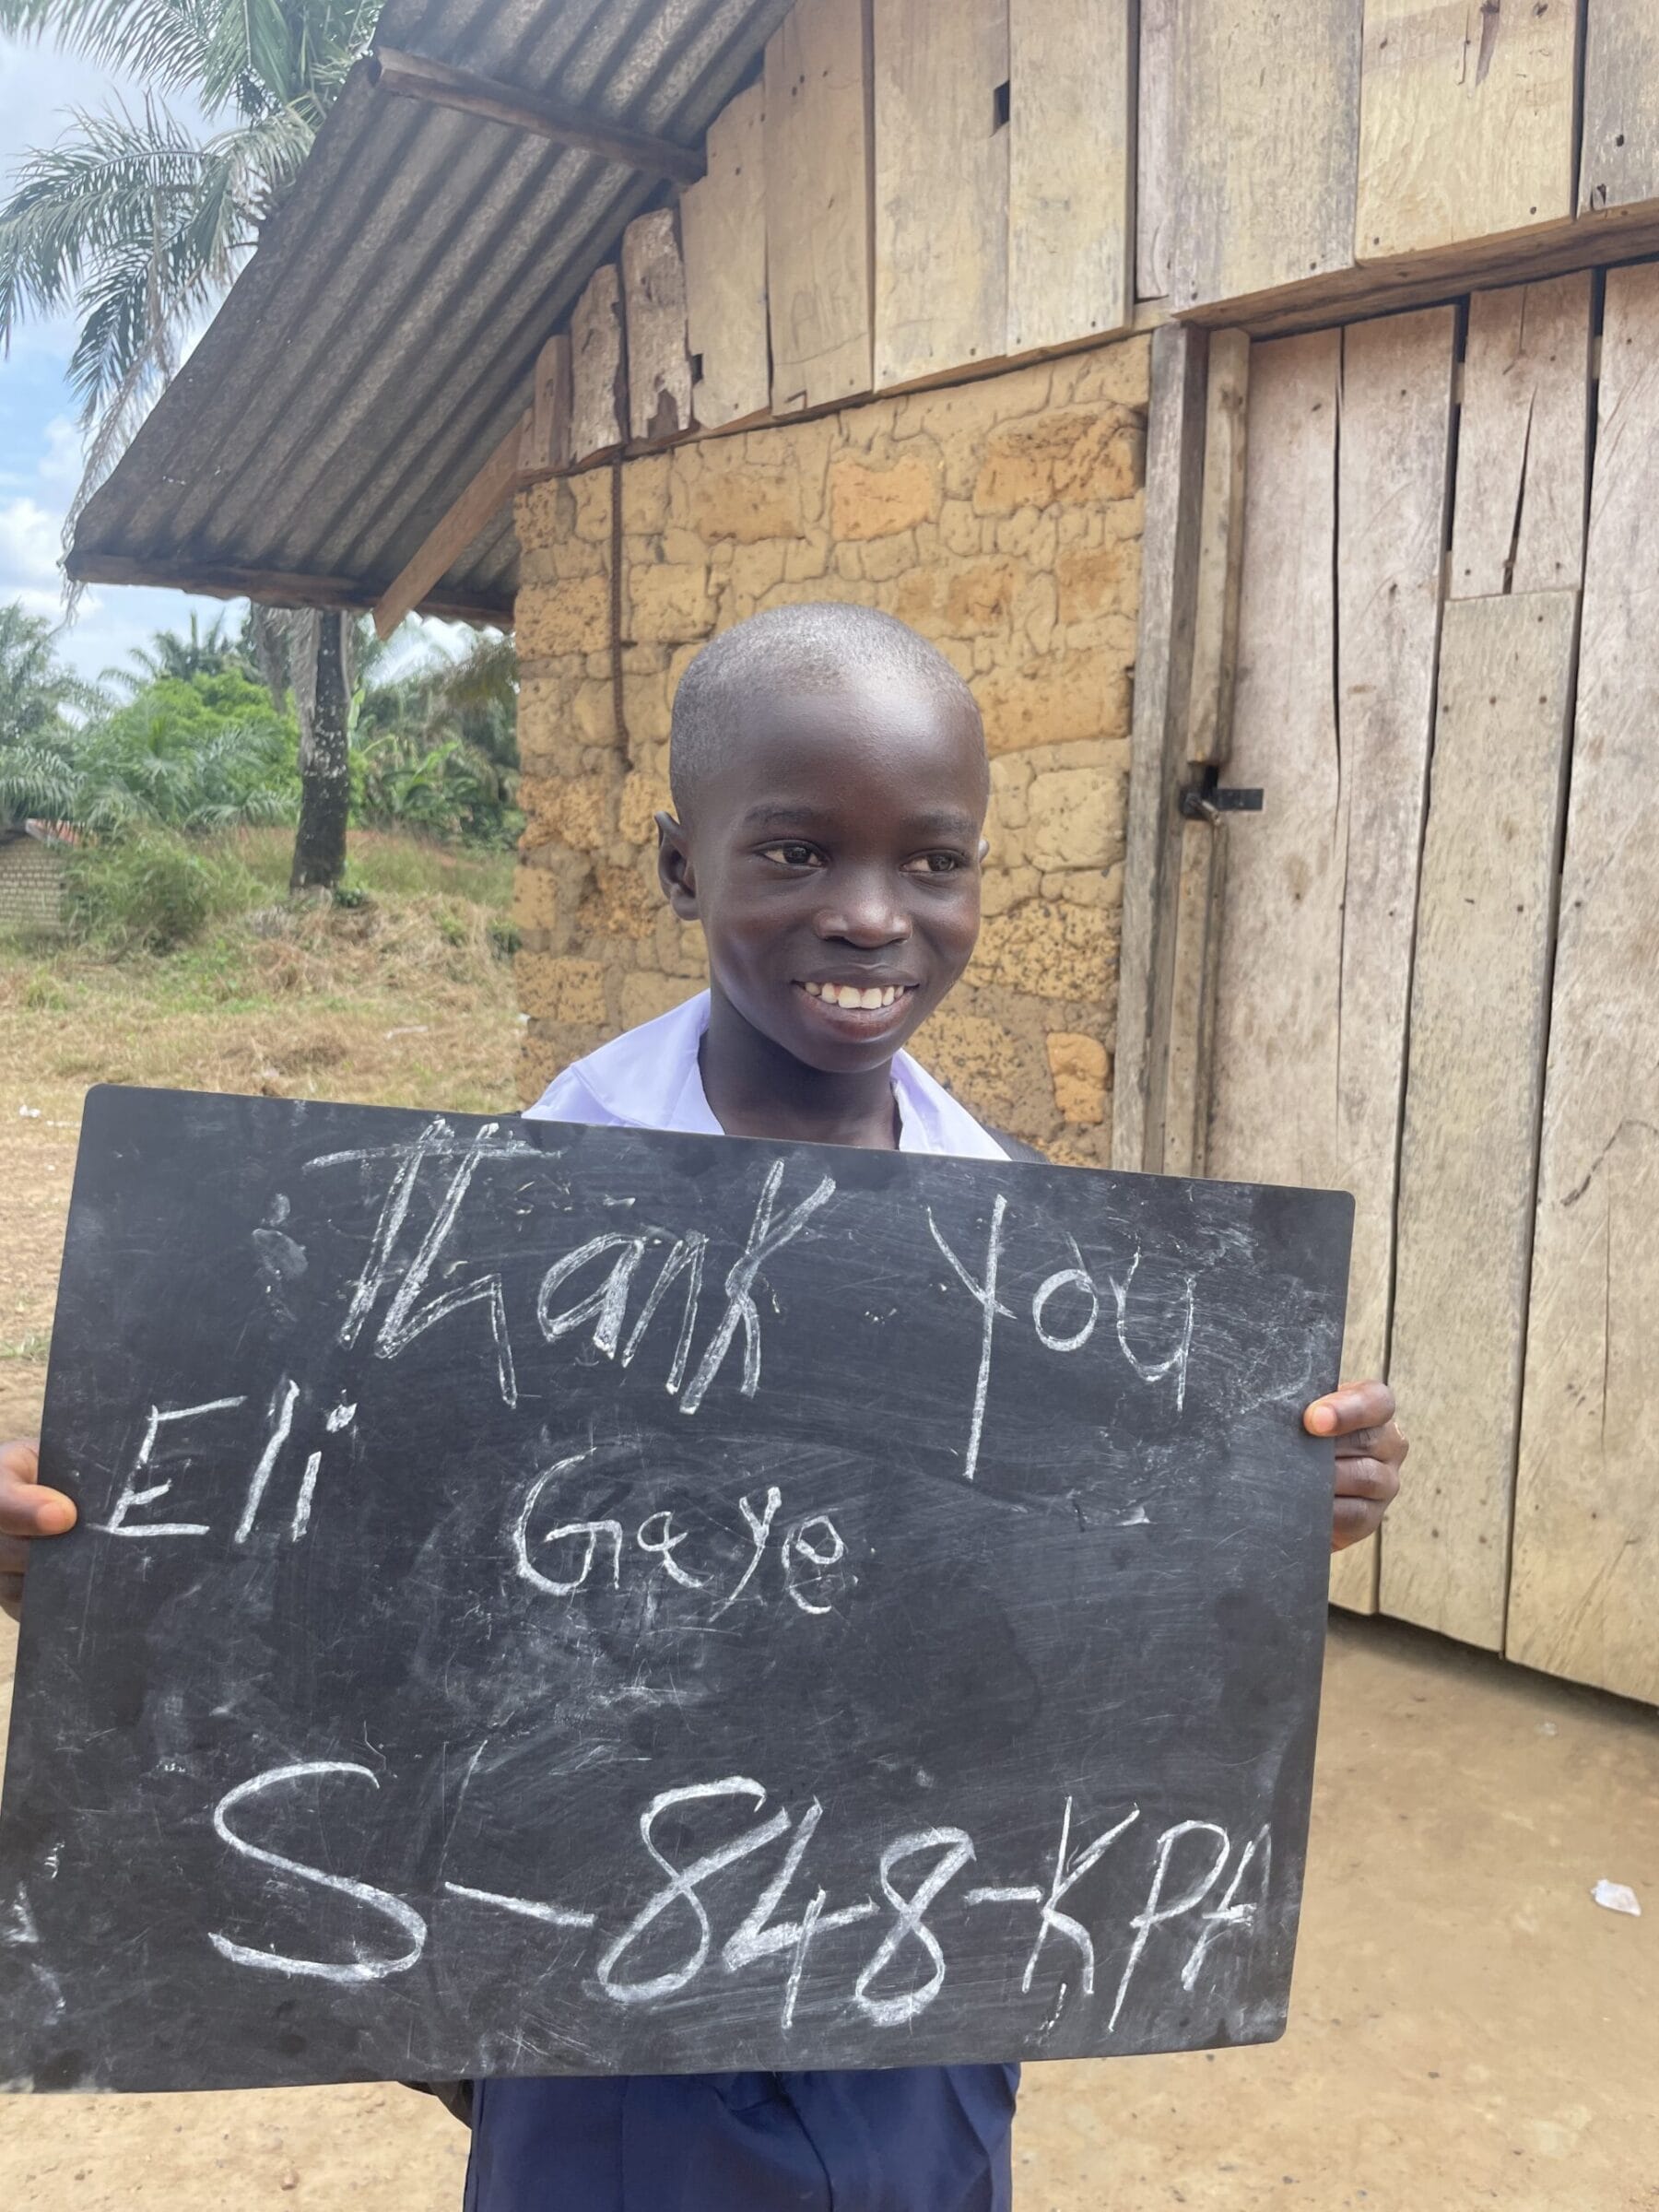 Thank You
Eli Gaye
S-848-KPA